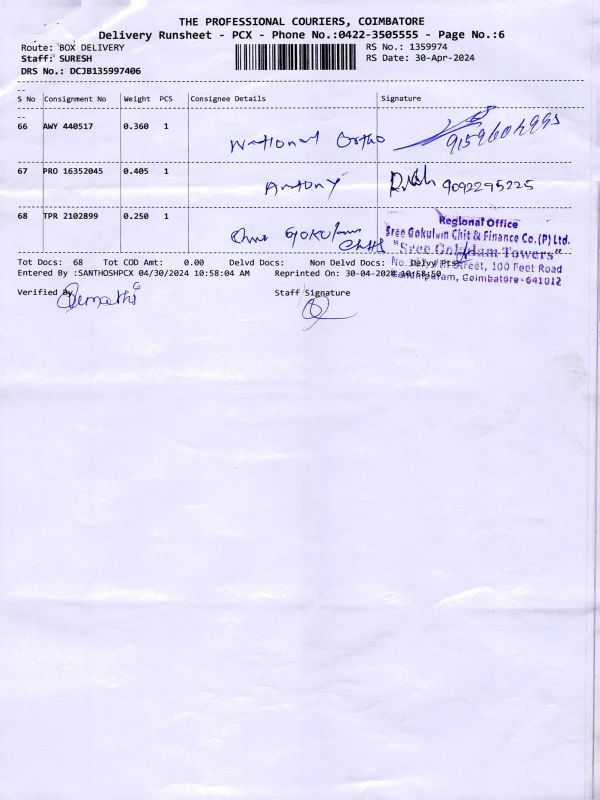 THE PROFESSIONAL COURIERS, COIMBATORE
Delivery Runsheet - PCX - Phone No.:0422-3505555 - Page No.:6
Route: BOX DELIVERY RS No.: 1359974
Staff: SURESH RS Date: 30-Apr-2024
DRS No.: DCJB135997406
S No Consignment No Weight PCS Consignee Details Signature
66 AWY 440517 0.360 1 National Ortho
67 PRO 16352045 0.405 1 Antony 9092295225
68 TPR 2102899 0.250 1 Gokulam Chits
Regional Office
Sree Gokulam Chit & Finance Co.(P) Ltd.
"Sree Gokulam Towers"
Street, 100 Feet Road
Gandhipuram, Coimbatore-641012
Tot Docs: 68 Tot COD Amt: 0.00 Delvd Docs: Non Delvd Docs: No. Delvy Pts:
Entered By :SANTHOSHPCX 04/30/2024 10:58:04 AM Reprinted On: 30-04-2024 10:58:50
Verified By Staff Signature